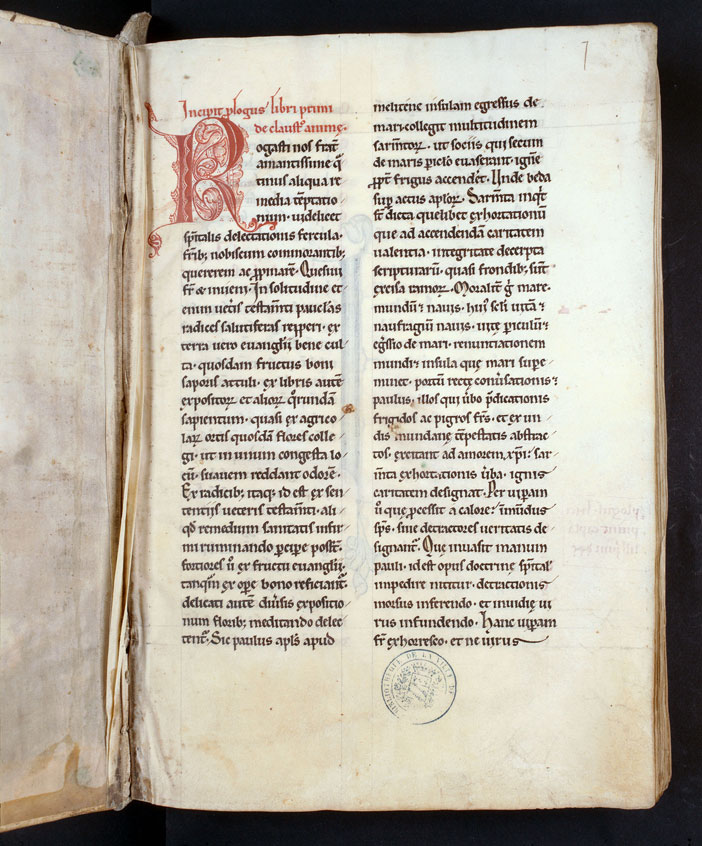 Incipit plogus libri primi
de claustº anime.
Rogasti nos frat͛
amantissime q̄
tinus aliqua re
media tēptatio
num. uidelicet
spitalis delectationis fercula.
frīb; nobiscum commorantib;
quererem ac ppinare. Quesiui
fr̄ & inueni. In solitudine et
enim uetis testam̄ti paucas
radices salutiferas repperi. ex
terra uero euanglii bene cul
ta. quosdam fructus boni
saporis attuli. ex libris autē
expositoꝝ et alioꝝ qrundā
sapientum. quasi ex agrico
laꝝ ortis quosdā flores colle
gi. ut in unum congesta lo
cū. suauem reddant odorē.
Ex radicib; itaq; id est ex sen
tentiis ueteris testam̄ti. ali
qd remedium sanitatis infir
mi ruminando pcipe post̄.
fortiores ū ex fructu euanglii.
tanqm ex ope bono reficiant̄.
delicati autē diuersis expositio
num florib; meditando delec
tent̄. Sic paulus apls apud
melitene insulam egressus de
mari. collegit multitudinem
sarm̄toꝝ. ut sociis qui secum
de maris piclo euaserant. ignē
ppt frigus accendet̄. Unde beda
sup actus aploꝝ. Sarm̄ta inqt
fr̄ dicta quelibet exhortationū
que ad accendendā caritatem
ualentia. integritate decerpta
scripturarū. quasi frondib; sūt
excisa ramoꝝ. Moralit̄ g̊ mare.
mundū & nauis. huiꝰ seli uitā &
naufragiū nauis. uite piculū &
egssio de mari. renunciationem
mundi & insula que mari supe
minet. portū recte conūsationis &
paulus. illos qui ūbo pdicationis
frigidos ac pigros frs. et ex un
dis mundane tēpestatis abstrac
tos. excitant ad amorem xpi: sar
m̄ta exhortationis ūba. ignis
caritatem designat. Per uipam
ū que pcessit a calore: inmūdus
sps. siue detractores ueritatis de
signant̄. Que inuasit manum
pauli. id est opus doctrine spital̄
impedire nititur. detractionis
morsus inferendo. et inuidie ui
rus infundendo. Hanc uipam
fr̄ exhorresco. et ne uirus
BIBLIOTHEQUE DE LA VILLE DE